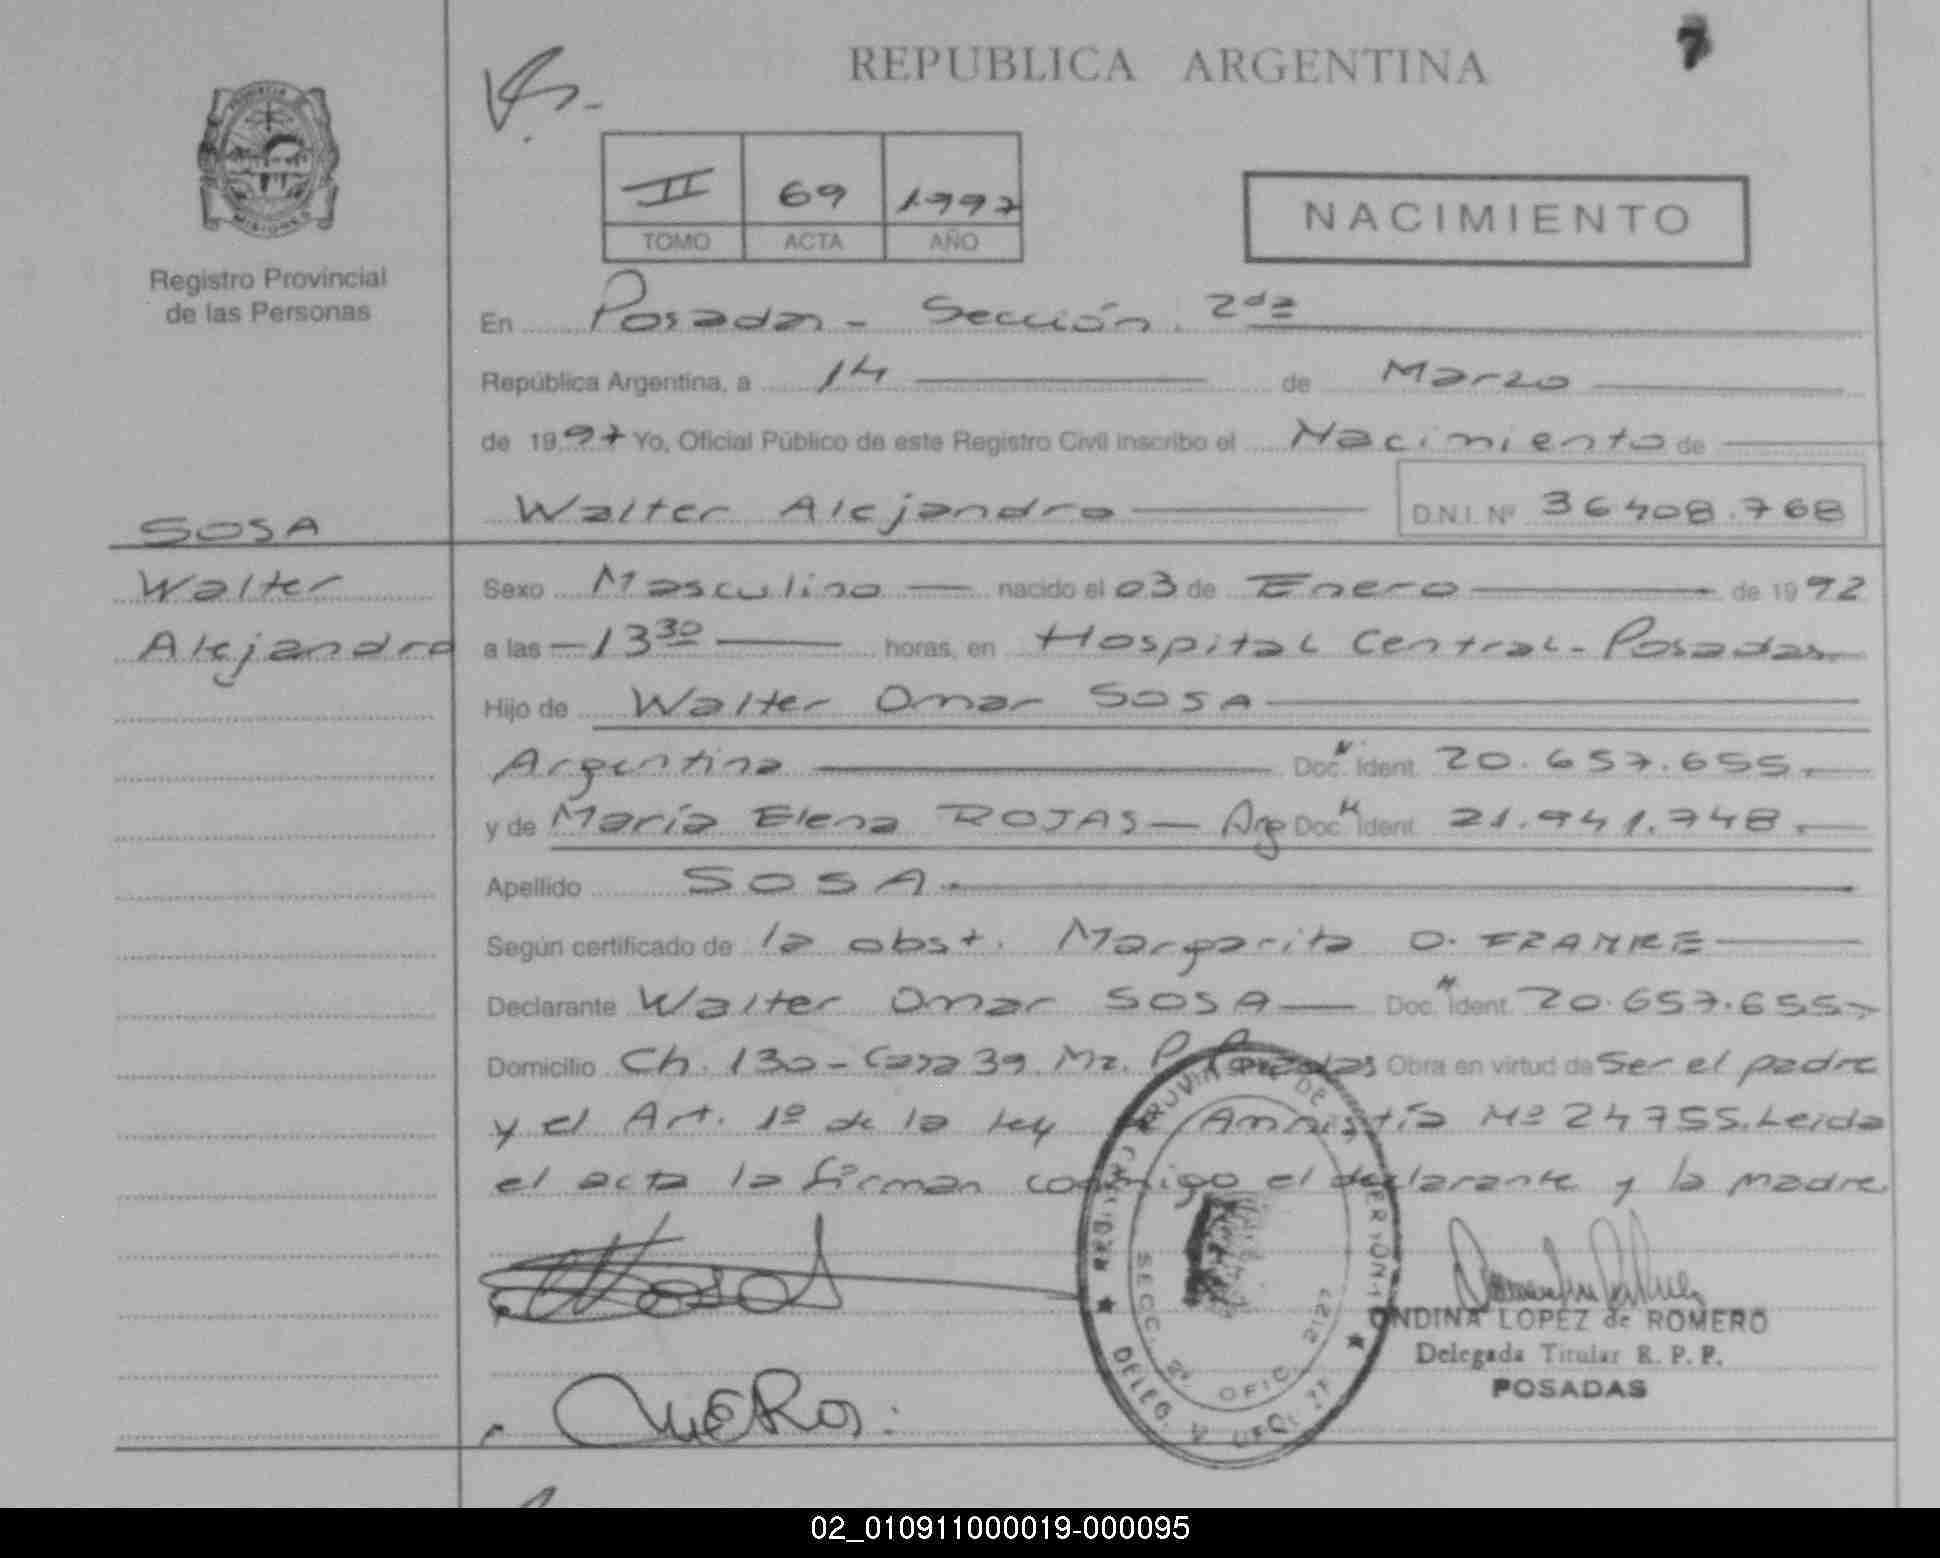 REPUBLICA ARGENTINA
7
II 69 1997
TOMO ACTA AÑO
NACIMIENTO
Registro Provincial
de las Personas
En Posadas - Sección 2da
República Argentina, a 14 de Marzo
de 1997 Yo, Oficial Público de este Registro Civil inscribo el Nacimiento de
Walter Alejandro D.N.I. Nº 36408.768
SOSA
Walter
Alejandro
Sexo Masculino nacido el 03 de Enero de 1992
a las 13 30 horas, en Hospital Central - Posadas
Hijo de Walter Omar SOSA
Argentina Doc. Ident. 20.657.655.
y de María Elena ROJAS - Arg Doc. Ident. 21.941.748.
Apellido SOSA
Según certificado de la obst. Margarita O. FRANKE
Declarante Walter Omar SOSA Doc. Ident. 20.657.655
Domicilio Ch. 130 - Casa 39 Mz. P. Posadas Obra en virtud de Ser el padre
y el Art. 1º de la ley de Amnistía Nº 24755. Leida
el acta la firman conmigo el declarante y la madre
SECC. 2ª OFIC. 2127
DELEG.
ONDINA LOPEZ de ROMERO
Delegada Titular R. P. P.
POSADAS
02_010911000019-000095